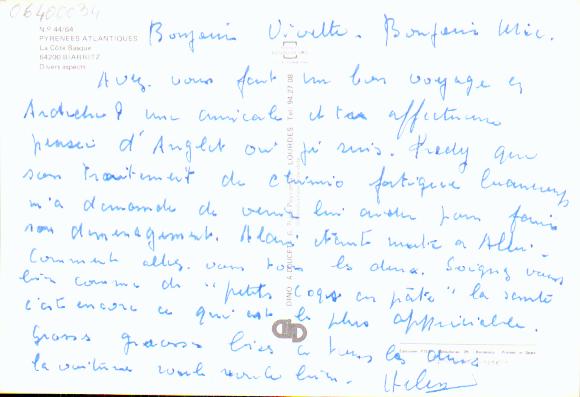 06400034
N° 44/64
PYRENEES ATLANTIQUES
La Côte Basque
64200 BIARRITZ
Divers aspects
Bonjour Vivette. Bonjour Mic.
Avez vous fait un bon voyage en
Ardeche? une amicale et très affectueuse
pensée d'Anglet où je suis. Fredy que
son traitement de chimio fatigue beaucoup
m'a demandé de venir lui aider pour faire
son demenagement. Alain étant
Comment allez vous tous les deux. Soignez vous
bien comme de "petits coqs en pâte" la santé
c'est encore ce qui est le plus appréciable.
Grosses grosses bises à tous les deux
la voiture roule roule bien.
LOURDES Tel 94 27 08
DINO A DOUCET